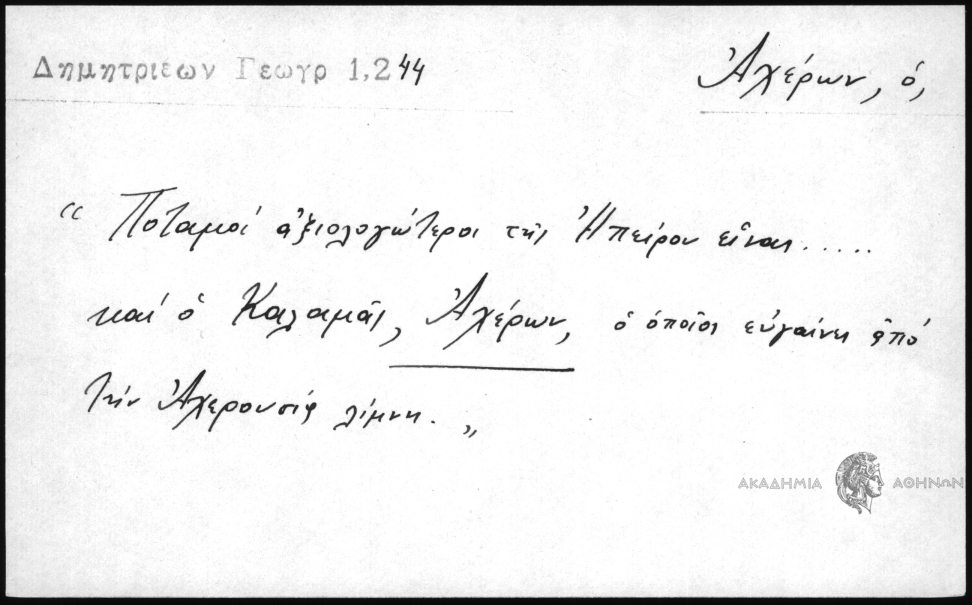 Δημητριεων Γεωγρ 1,244
Ἀχέρων, ὁ,
“ Ποταμοί ἀξιολογώτεροι τῆς Ἠπείρου εἶναι.....
καί ὁ Καλαμᾶς, Ἀχέρων, ὁ ὁποῖος εὐγαίνει ἀπό
τήν Ἀχερουσία λίμνη. „
ΑΚΑΔΗΜΙΑ ΑΘΗΝΩΝ